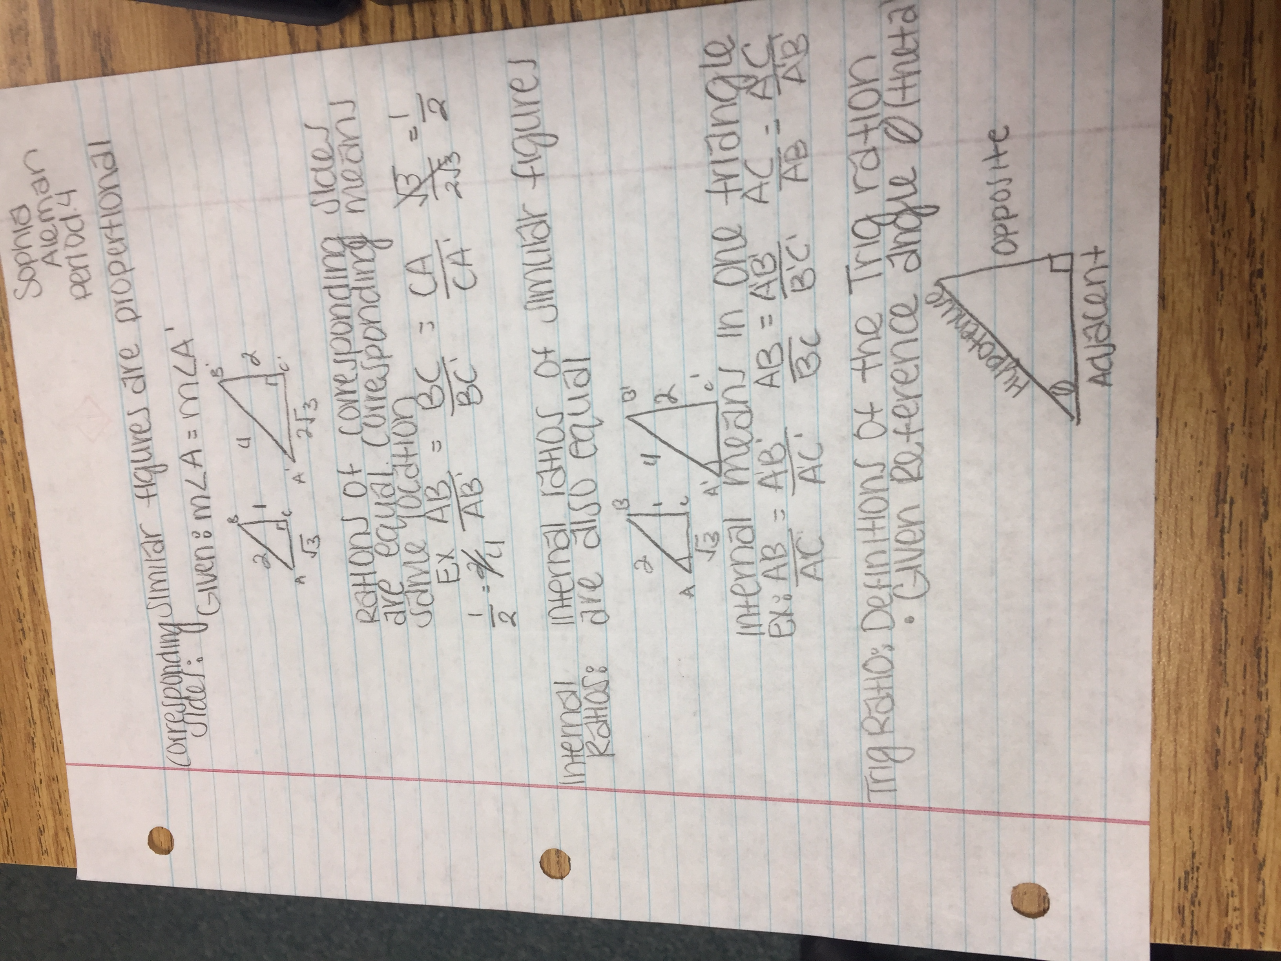 Sophia
Aleman
period.4
Corresponding Similar figures are propertional
Sides: Given: m∠A = m∠A'
B
2
1
A
√3
C
B'
4
2
A'
2√3
C'
Rations of corresponding sides
are equal. Corresponding means
same location
Ex AB/A'B' = BC/B'C' = CA/C'A' √3/2√3 = 1/2
1/2 = 2/4
Internal Internal ratios of similar figures
Ratios: are also equal
B
2
1
A
√3
C
B'
4
2
A'
C'
Internal means in one triangle
Ex: AB/AC = A'B'/A'C' AB/BC = A'B'/B'C' AC/AB = A'C'/A'B'
Trig Ratio: Definitions of the Trig ration
• Given Reference angle θ (theta
Hypotenuse
Opposite
θ
Adjacent